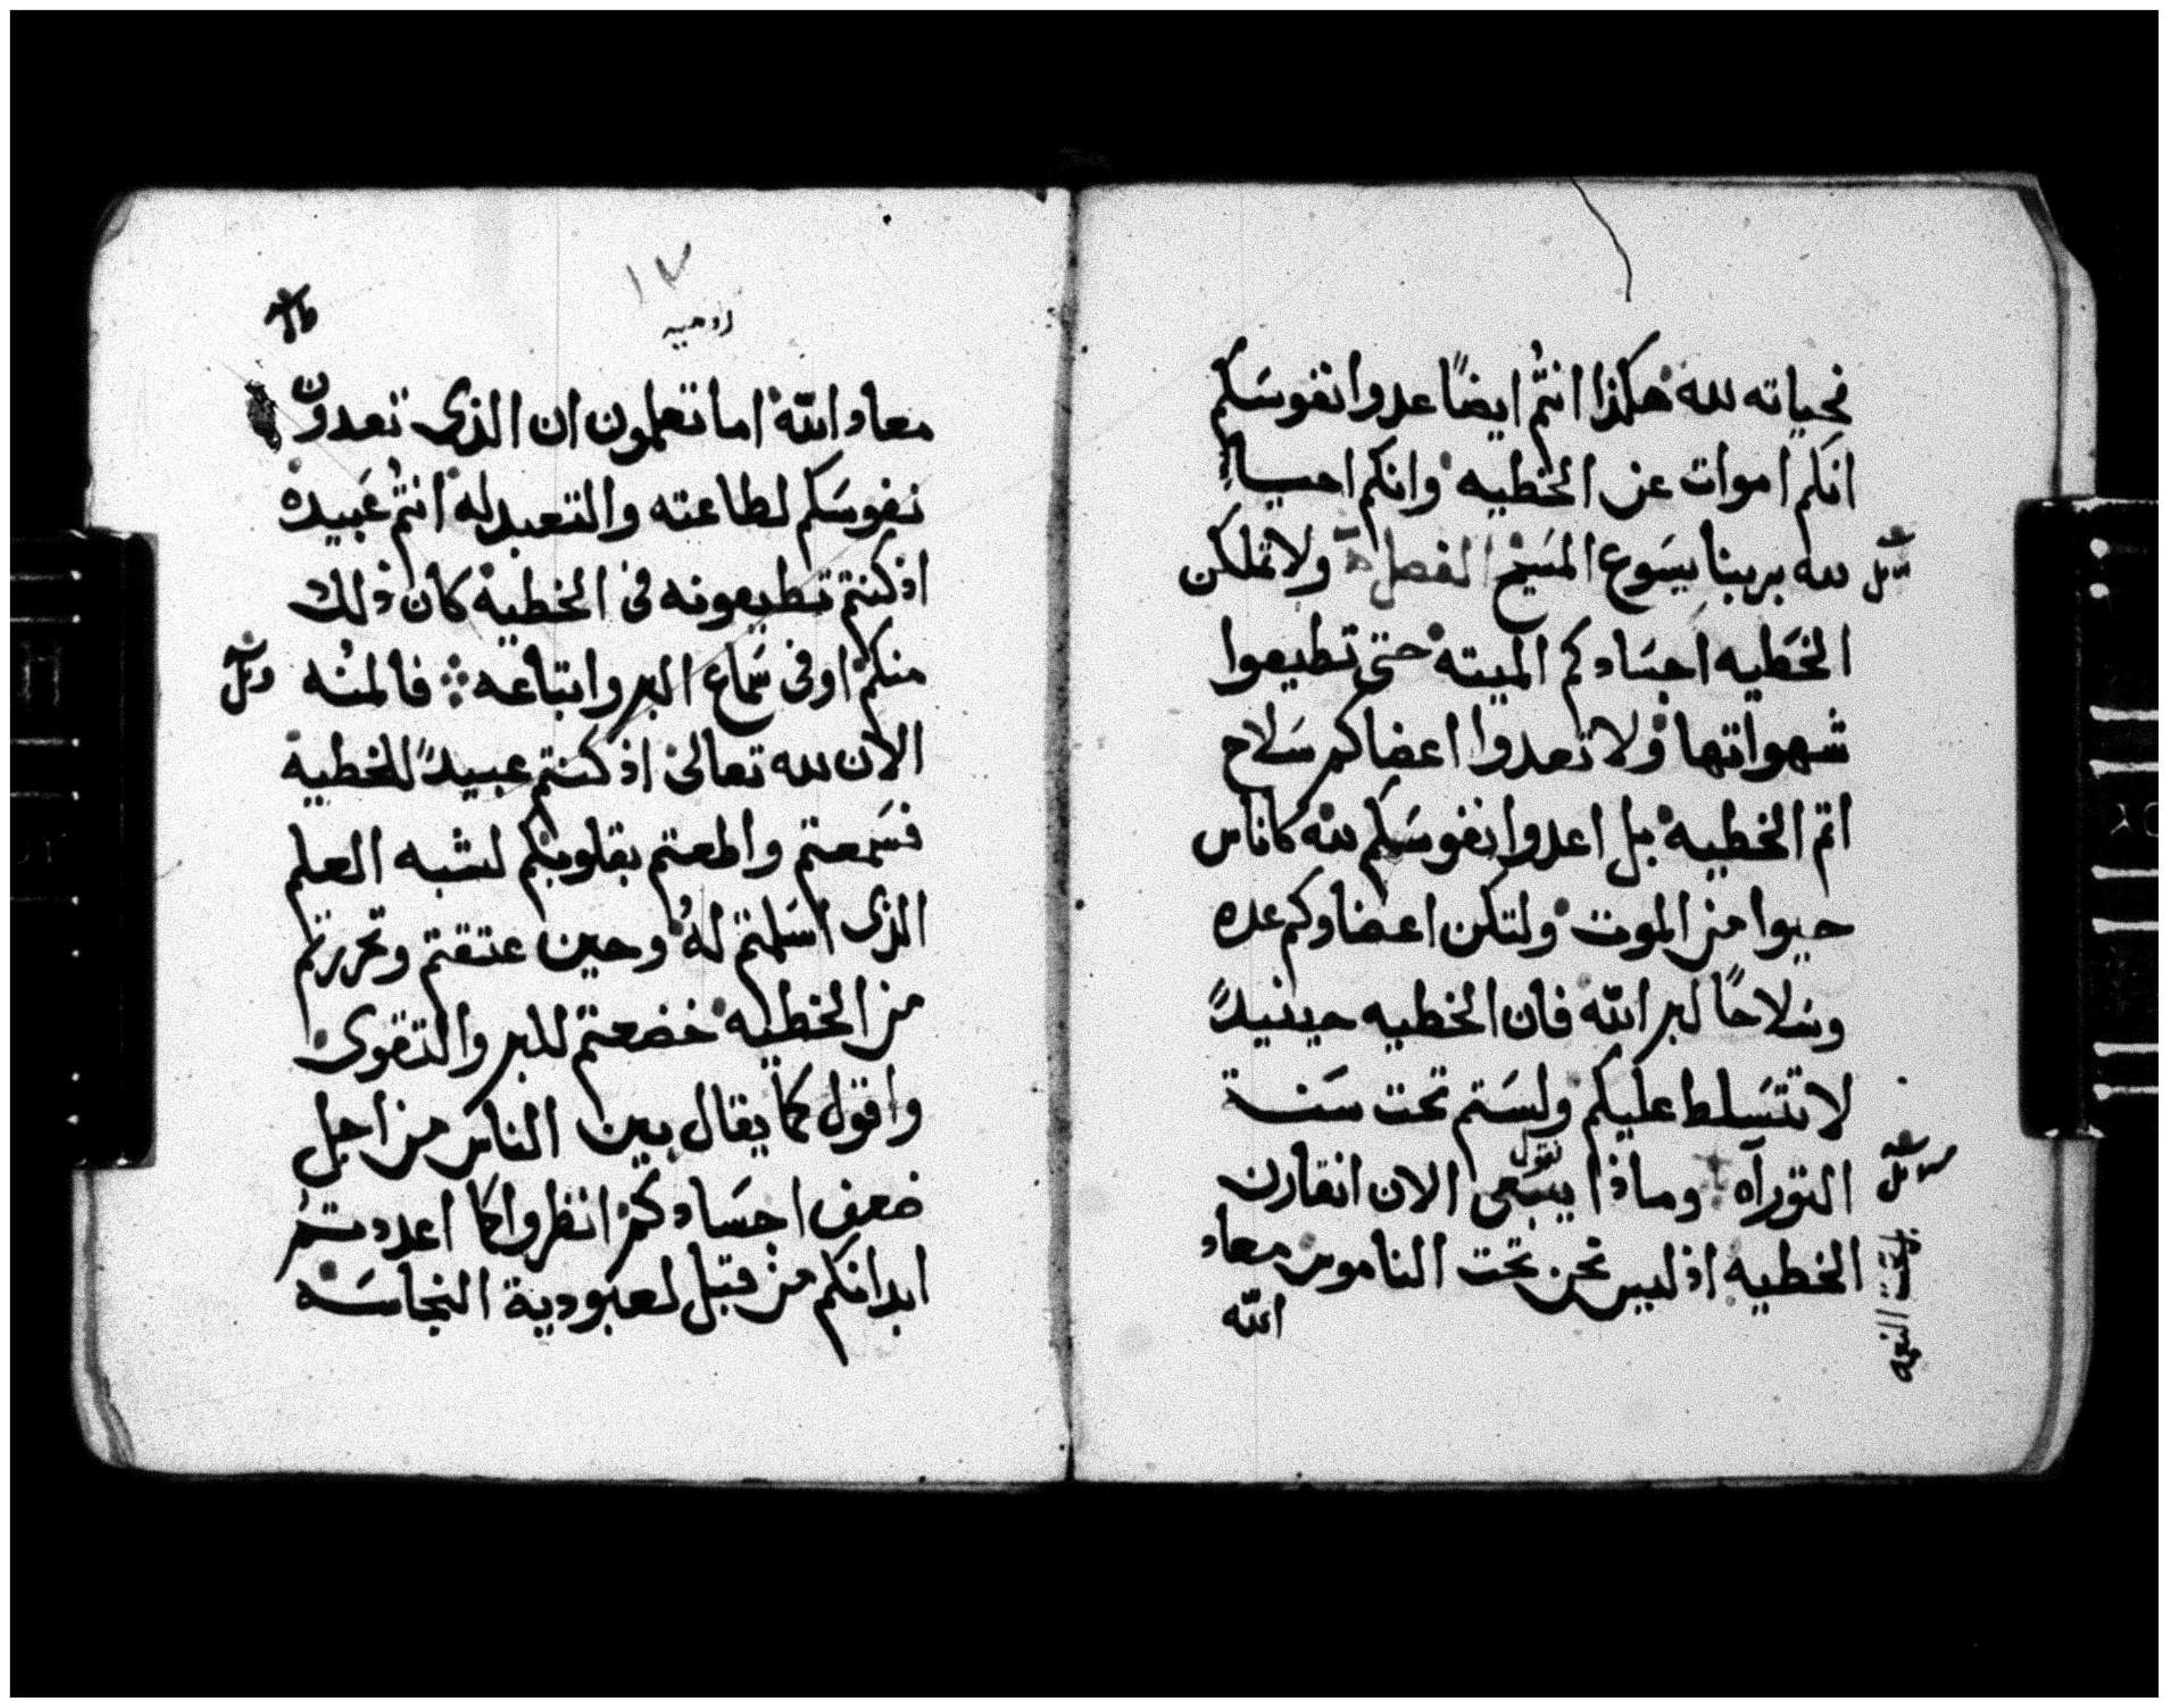 فحياته لله هكذا انتم ايضًا عدوا نفوسكم
انكم اموات عن الخطيه وانكم احيا
لله بربنا يسوع المسيح الفصل ولا تملكن
الخطيه اجسادكم الميته حتى تطيعوا
شهواتها ولا تعدوا اعضاكم سلاح
اثم الخطيه بل اعدوا نفوسكم لله كاناس
حيوا من الموت ولتكن اعضاوكم عده
وسلاحًا لبر الله فان الخطيه حينيدًا
لا تتسلط عليكم ولستم تحت سنة
التوراه وماذا ينبغى نقول الان انقارن
الخطيه اذ ليس نحن تحت الناموس معاد
الله
بل تحت النعمه
١٧
روميه
معاد الله اما تعلمون ان الذى تعدون
نفوسكم لطاعته والتعبد له انتم عبيده
اذ كنتم تطيعونه فى الخطية كان ذلك
منكم او فى سماع البر واتباعه فالمنه
الان لله تعالى اذ كنتم عبيدًا للخطية
فسمعتم واطعتم بقلوبكم لشبه العلم
الذى اسلمتم له وحين عتقتم وتحررتم
من الخطيه خضعتم للبر والتقوى
واقول كما يقال بين الناس من اجل
ضعف اجسادكم انظروا كما اعددتم
ابدانكم من قبل لعبودية النجاسه